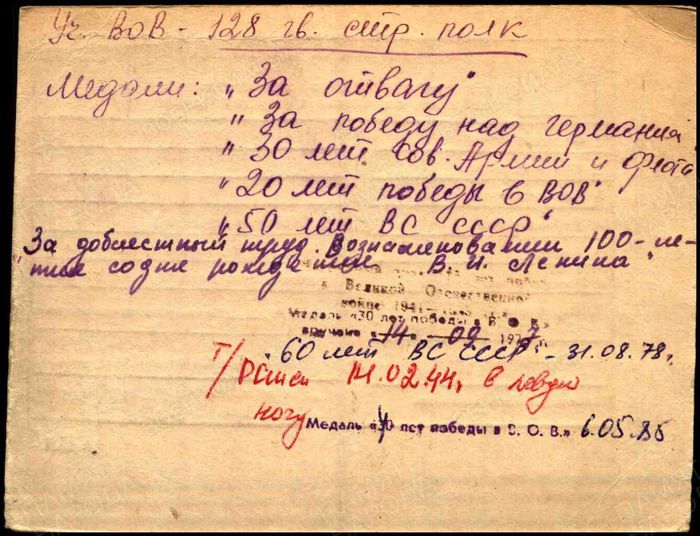 Уч. ВОВ - 128 гв. стр. полк
Медали: „За отвагу"
„За победу над Германией
„30 лет Сов. Армии и флота
„20 лет победы в ВОВ"
„50 лет ВС СССР"
„За доблестный труд. В ознаменовании 100-ле-
тие со дня рождения В. И. Ленина"
в Великой Отечественной
войне 1941—
Медаль «30 лет победы в В. О. В.»
вручена «14» 02 197
60 лет ВС СССР - 31.08.78г.
Т/ранен 14.02.44г. в левую
ногу
Медаль «40 лет победы в В. О. В.» 6.05.85